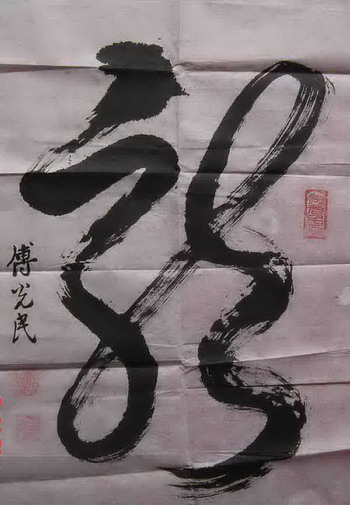 龍
傅光民